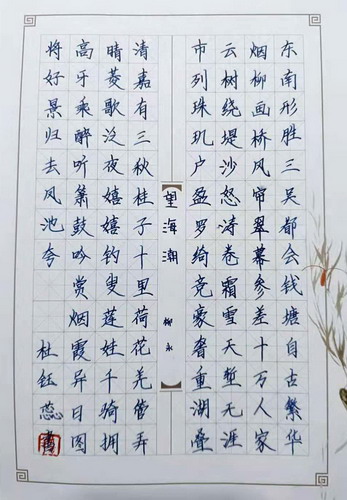 东南形胜三吴都会钱塘自古繁华
烟柳画桥风帘翠幕参差十万人家
云树绕堤沙怒涛卷霜雪天堑无涯
市列珠玑户盈罗绮竞豪奢重湖叠
望海潮
柳永
清嘉有三秋桂子十里荷花羌管弄
晴菱歌泛夜嬉嬉钓叟莲娃千骑拥
高牙乘醉听箫鼓吟赏烟霞异日图
将好景归去凤池夸
杜钰蕊书